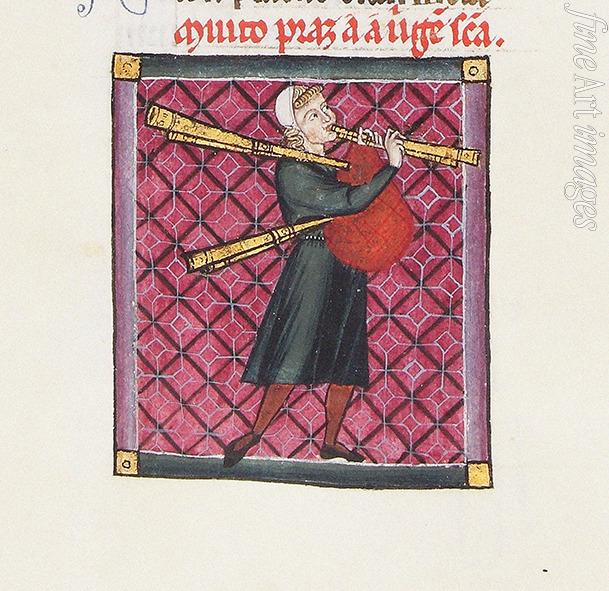 Muito praz a a uigẽ sc̃a.
fine Art images